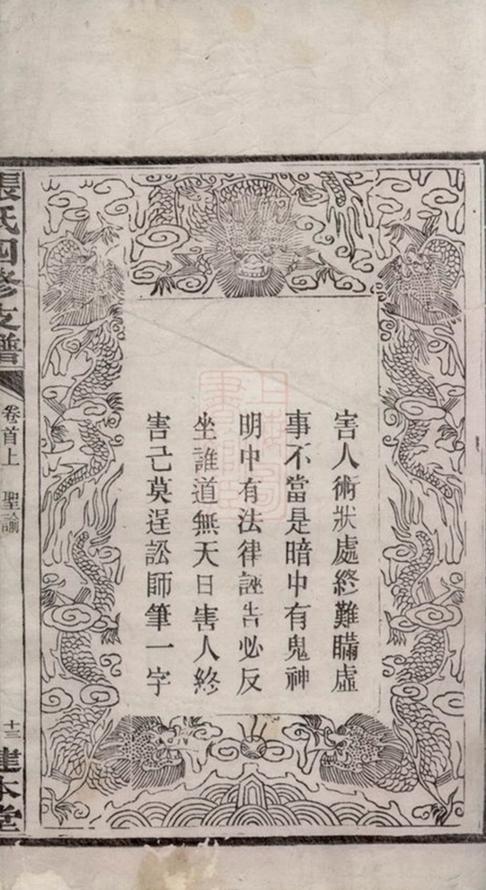 害人術狀處終難瞞虛
事不當是暗中有鬼神
明中有法律誣吿必反
坐誰道無天日害人終
害己莫逞訟師筆一字
張氏四修支譜
卷首上
聖諭
十三
建本堂